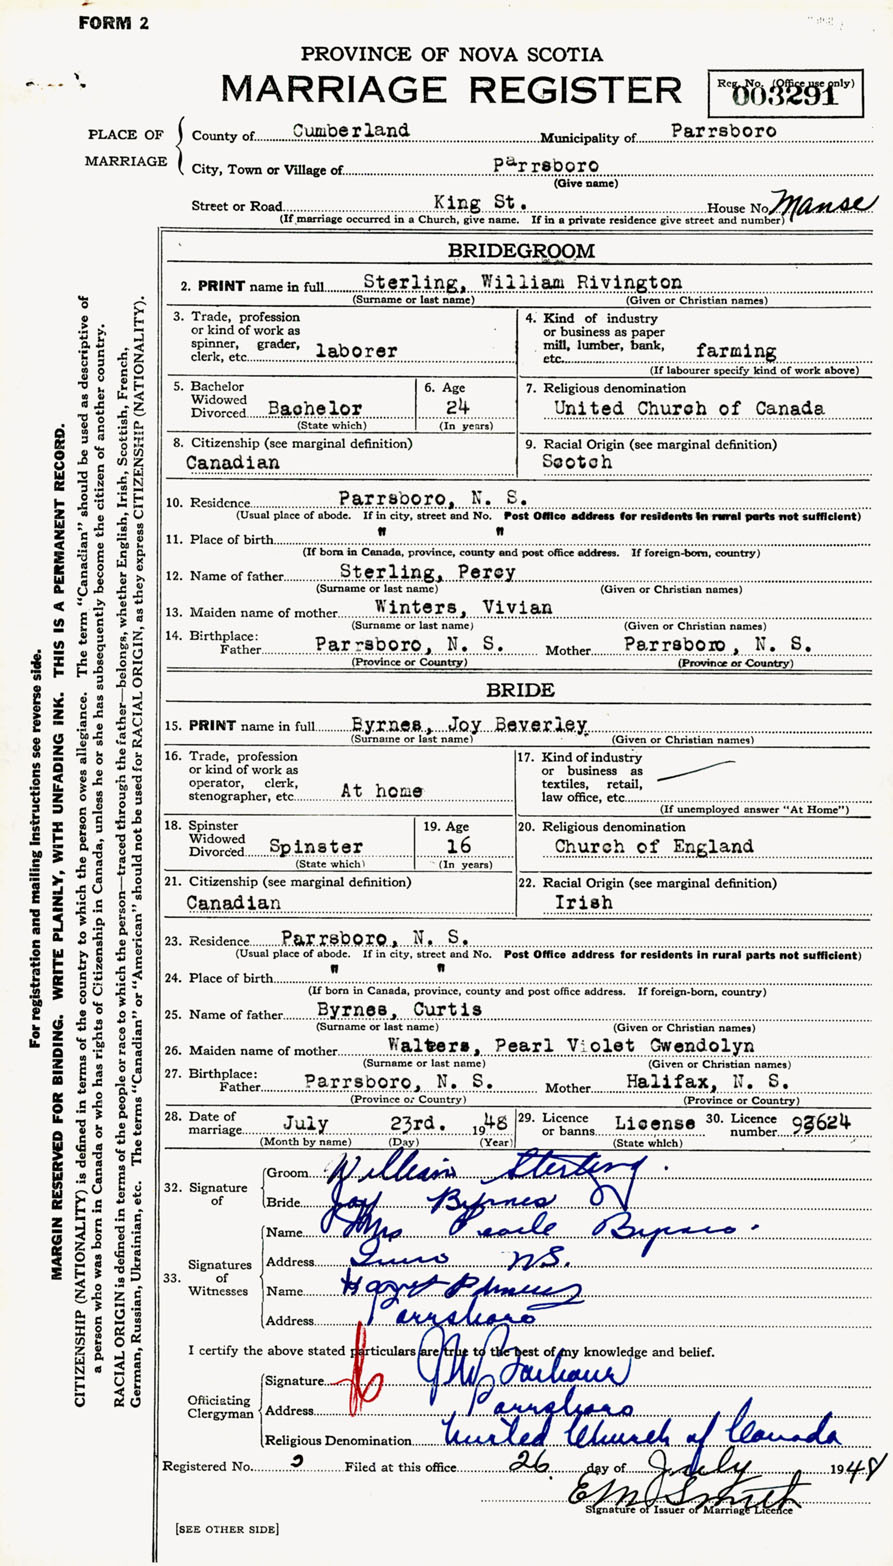 FORM 2
PROVINCE OF NOVA SCOTIA
MARRIAGE REGISTER
Reg. No. (Office use only)
003291
PLACE OF MARRIAGE
County of Cumberland Municipality of Parrsboro
City, Town or Village of Parrsboro
(Give name)
Street or Road King St. House No. Manse
(If marriage occurred in a Church, give name. If in a private residence give street and number)
BRIDEGROOM
2. PRINT name in full Sterling, William Rivington
(Surname or last name) (Given or Christian names)
3. Trade, profession or kind of work as spinner, grader, clerk, etc. laborer
4. Kind of industry or business as paper mill, lumber, bank, etc. farming
(If labourer specify kind of work above)
5. Bachelor Widowed Divorced Bachelor
(State which)
6. Age 24
(In years)
7. Religious denomination
United Church of Canada
8. Citizenship (see marginal definition)
Canadian
9. Racial Origin (see marginal definition)
Scotch
10. Residence Parrsboro, N. S.
(Usual place of abode. If in city, street and No. Post Office address for residents in rural parts not sufficient)
11. Place of birth " "
(If born in Canada, province, county and post office address. If foreign-born, country)
12. Name of father Sterling, Percy
(Surname or last name) (Given or Christian names)
13. Maiden name of mother Winters, Vivian
(Surname or last name) (Given or Christian names)
14. Birthplace:
Father Parrsboro, N. S. Mother Parrsboro, N. S.
(Province or Country) (Province or Country)
BRIDE
15. PRINT name in full Byrnes, Joy Beverley
(Surname or last name) (Given or Christian names)
16. Trade, profession or kind of work as operator, clerk, stenographer, etc. At home
17. Kind of industry or business as textiles, retail, law office, etc.
(If unemployed answer "At Home")
18. Spinster Widowed Divorced Spinster
(State which)
19. Age 16
(In years)
20. Religious denomination
Church of England
21. Citizenship (see marginal definition)
Canadian
22. Racial Origin (see marginal definition)
Irish
23. Residence Parrsboro, N. S.
(Usual place of abode. If in city, street and No. Post Office address for residents in rural parts not sufficient)
24. Place of birth " "
(If born in Canada, province, county and post office address. If foreign-born, country)
25. Name of father Byrnes, Curtis
(Surname or last name) (Given or Christian names)
26. Maiden name of mother Walters, Pearl Violet Gwendolyn
(Surname or last name) (Given or Christian names)
27. Birthplace:
Father Parrsboro, N. S. Mother Halifax, N. S.
(Province or Country) (Province or Country)
28. Date of marriage July 23rd. 1948
(Month by name) (Day) (Year)
29. Licence or banns License
(State which)
30. Licence number 93624
32. Signature of
Groom William Sterling.
Bride Joy Byrnes
33. Signatures of Witnesses
Name Mrs Byrnes.
Address NS.
Name
Address Parrsboro
I certify the above stated particulars are true to the best of my knowledge and belief.
Officiating Clergyman
Signature
Address Parrsboro
Religious Denomination United Church of Canada
Registered No. Filed at this office 26 day of July 1948
E M Smith
Signature of Issuer of Marriage Licence
[SEE OTHER SIDE]
For registration and mailing instructions see reverse side.
MARGIN RESERVED FOR BINDING. WRITE PLAINLY, WITH UNFADING INK. THIS IS A PERMANENT RECORD.
CITIZENSHIP (NATIONALITY) is defined in terms of the country to which the person owes allegiance. The term "Canadian" should be used as descriptive of
a person who was born in Canada or who has rights of Citizenship in Canada, unless he or she has subsequently become the citizen of another country.
RACIAL ORIGIN is defined in terms of the people or race to which the person—traced through the father—belongs, whether English, Irish, Scottish, French,
German, Russian, Ukrainian, etc. The terms "Canadian" or "American" should not be used for RACIAL ORIGIN, as they express CITIZENSHIP (NATIONALITY).